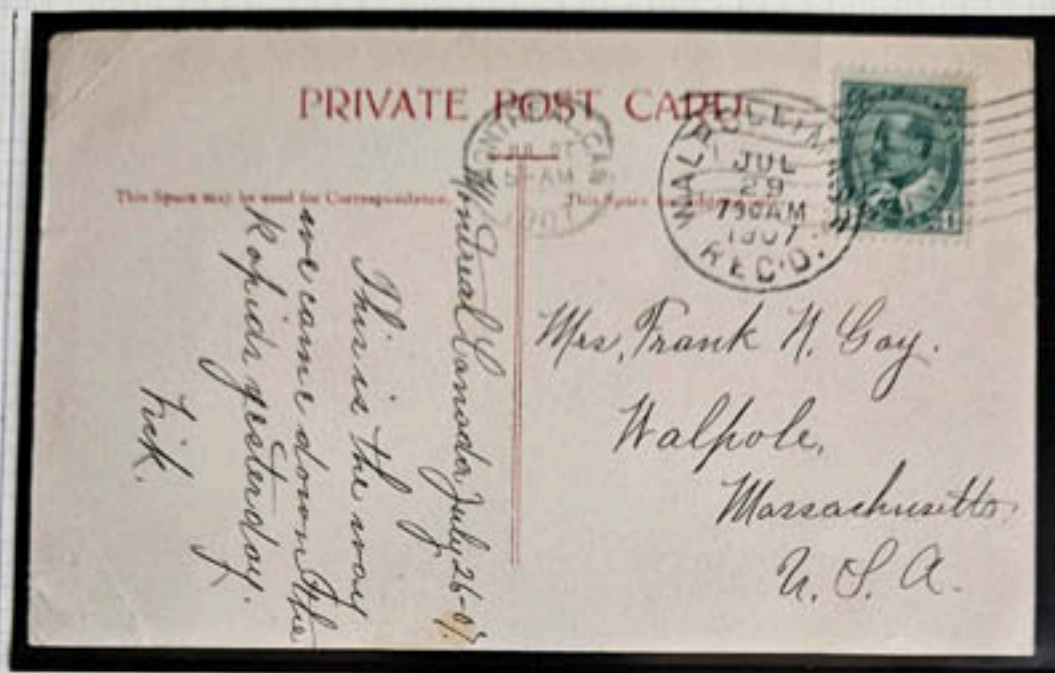 PRIVATE POST CARD
This Space may be used for Correspondence.
This Space
MONTREAL CAN
AM
1907
WALPOLE
JUL
29
730AM
1907
REC'D.
Montreal Canada July 26-07.
This is the way
we came down the
Rapids yesterday.
Mrs. Frank N. Gay.
Walpole,
Massachusetts,
U. S. A.